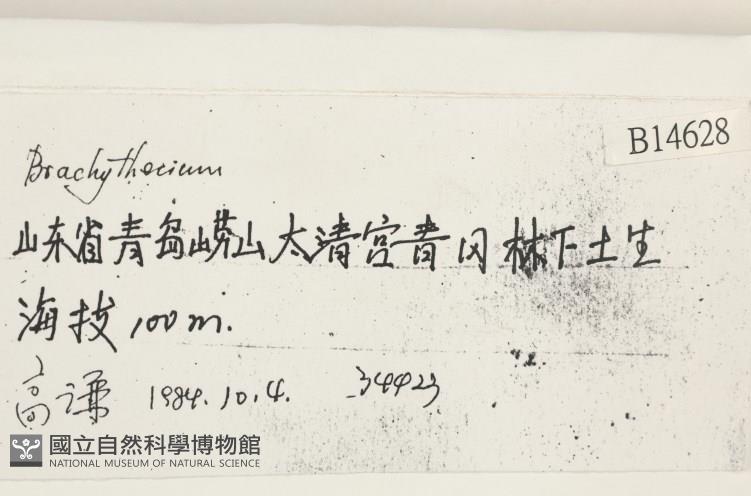 B14628
Brachythecium
山东省青岛崂山太清宫青冈林下土生
海拔100m.
高谦 1984.10.4. 34423
國立自然科學博物館
NATIONAL MUSEUM OF NATURAL SCIENCE